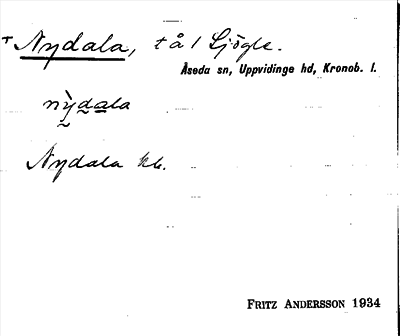 + Nydala, t å 1 Sjögle.
Åseda sn, Uppvidinge hd, Kronob. l.
nỳdala
Nydala kb.
FRITZ ANDERSSON 1934